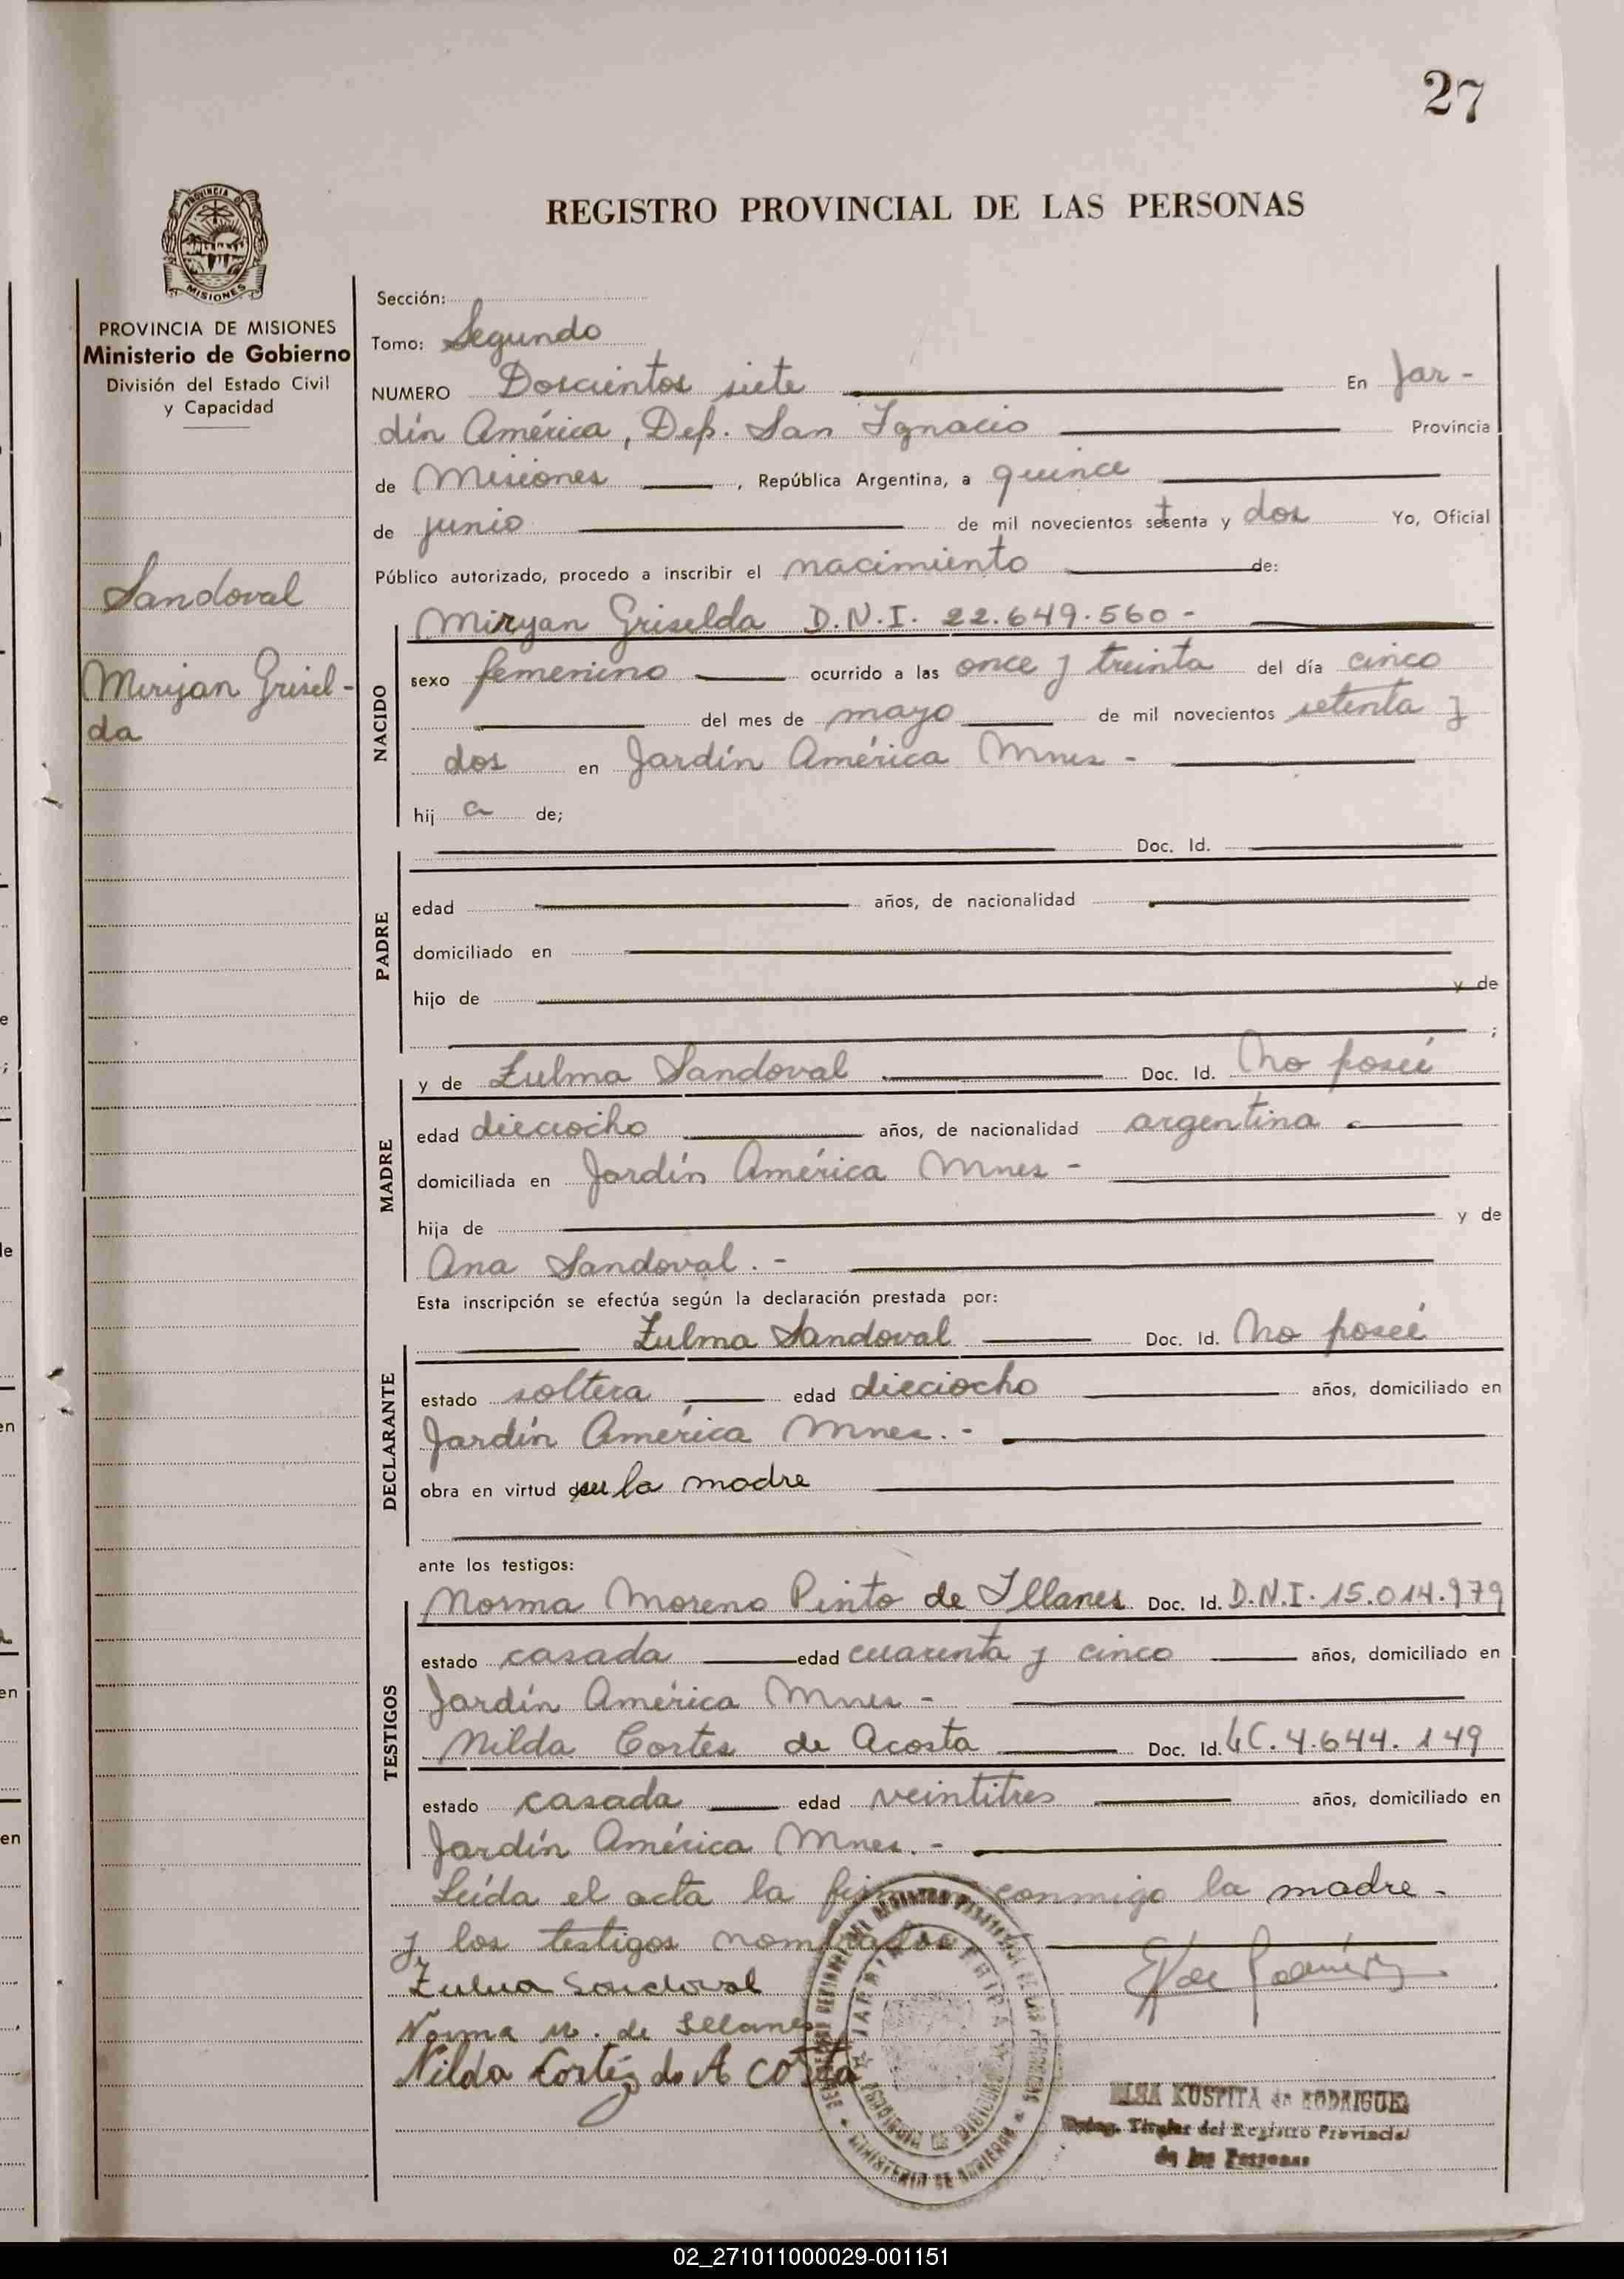 27
REGISTRO PROVINCIAL DE LAS PERSONAS
PROVINCIA DE MISIONES
Ministerio de Gobierno
División del Estado Civil
y Capacidad
Sandoval
Miryan Grisel-
da
Sección:
Tomo: Segundo
NUMERO Doscientos siete En Jar-
dín América, Dep. San Ignacio Provincia
de Misiones, República Argentina, a quince
de junio de mil novecientos setenta y dos Yo, Oficial
Público autorizado, procedo a inscribir el nacimiento de:
NACIDO
Miryan Griselda D.N.I. 22.649.560-
sexo femenino ocurrido a las once y treinta del día cinco
del mes de mayo de mil novecientos setenta y
dos en Jardín América Mnes-
hij a de;
PADRE
Doc. Id.
edad años, de nacionalidad
domiciliado en
hijo de y de
;
MADRE
y de Zulma Sandoval Doc. Id. No poseé
edad dieciocho años, de nacionalidad argentina
domiciliada en Jardín América Mnes-
hija de y de
Ana Sandoval.-
Esta inscripción se efectúa según la declaración prestada por:
DECLARANTE
Zulma Sandoval Doc. Id. No poseé
estado soltera edad dieciocho años, domiciliado en
Jardín América Mnes.-
obra en virtud la madre
ante los testigos:
TESTIGOS
Norma Moreno Pinto de Illanes Doc. Id. D.N.I. 15.014.979
estado casada edad cuarenta y cinco años, domiciliado en
Jardín América Mnes-
Nilda Cortes de Acosta Doc. Id. LC. 4.644.149
estado casada edad veintitres años, domiciliado en
Jardín América Mnes.-
Leída el acta la conmigo la madre-
y los testigos nombrados
Zulma Sandoval
Norma M. de Illanes
Nilda Cortéz de Acosta
KUSPITA de RODRIGUEZ
Titular del Registro Provincial
de las Personas
MINISTERIO DE GOBIERNO
02_271011000029-001151